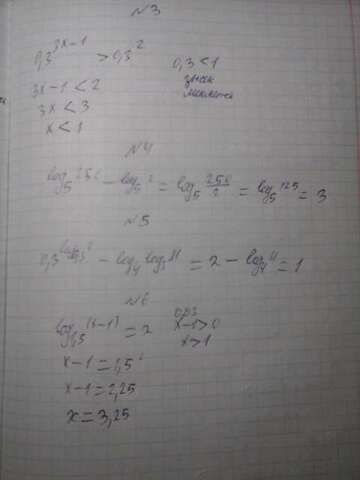 №3
0,3^{3x-1} > 0,3^2    0,3 < 1
3x-1 < 2    знак
3x < 3    меняется
x < 1
№4
log_5 250 - log_5 2 = log_5 250/2 = log_5 125 = 3
№5
0,3^{log_{0,3} 2} - log_4 log_3 81 = 2 - log_4 4 = 1
№6
log_{1,5}(x-1) = 2    ОДЗ
x-1 > 0
x > 1
x-1 = 1,5^2
x-1 = 2,25
x = 3,25